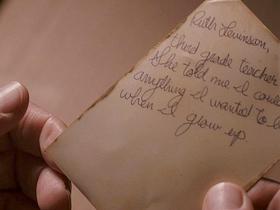 Ruth Levinson,
third grade teacher.
She told me I could
anything I wanted to
when I grow up.